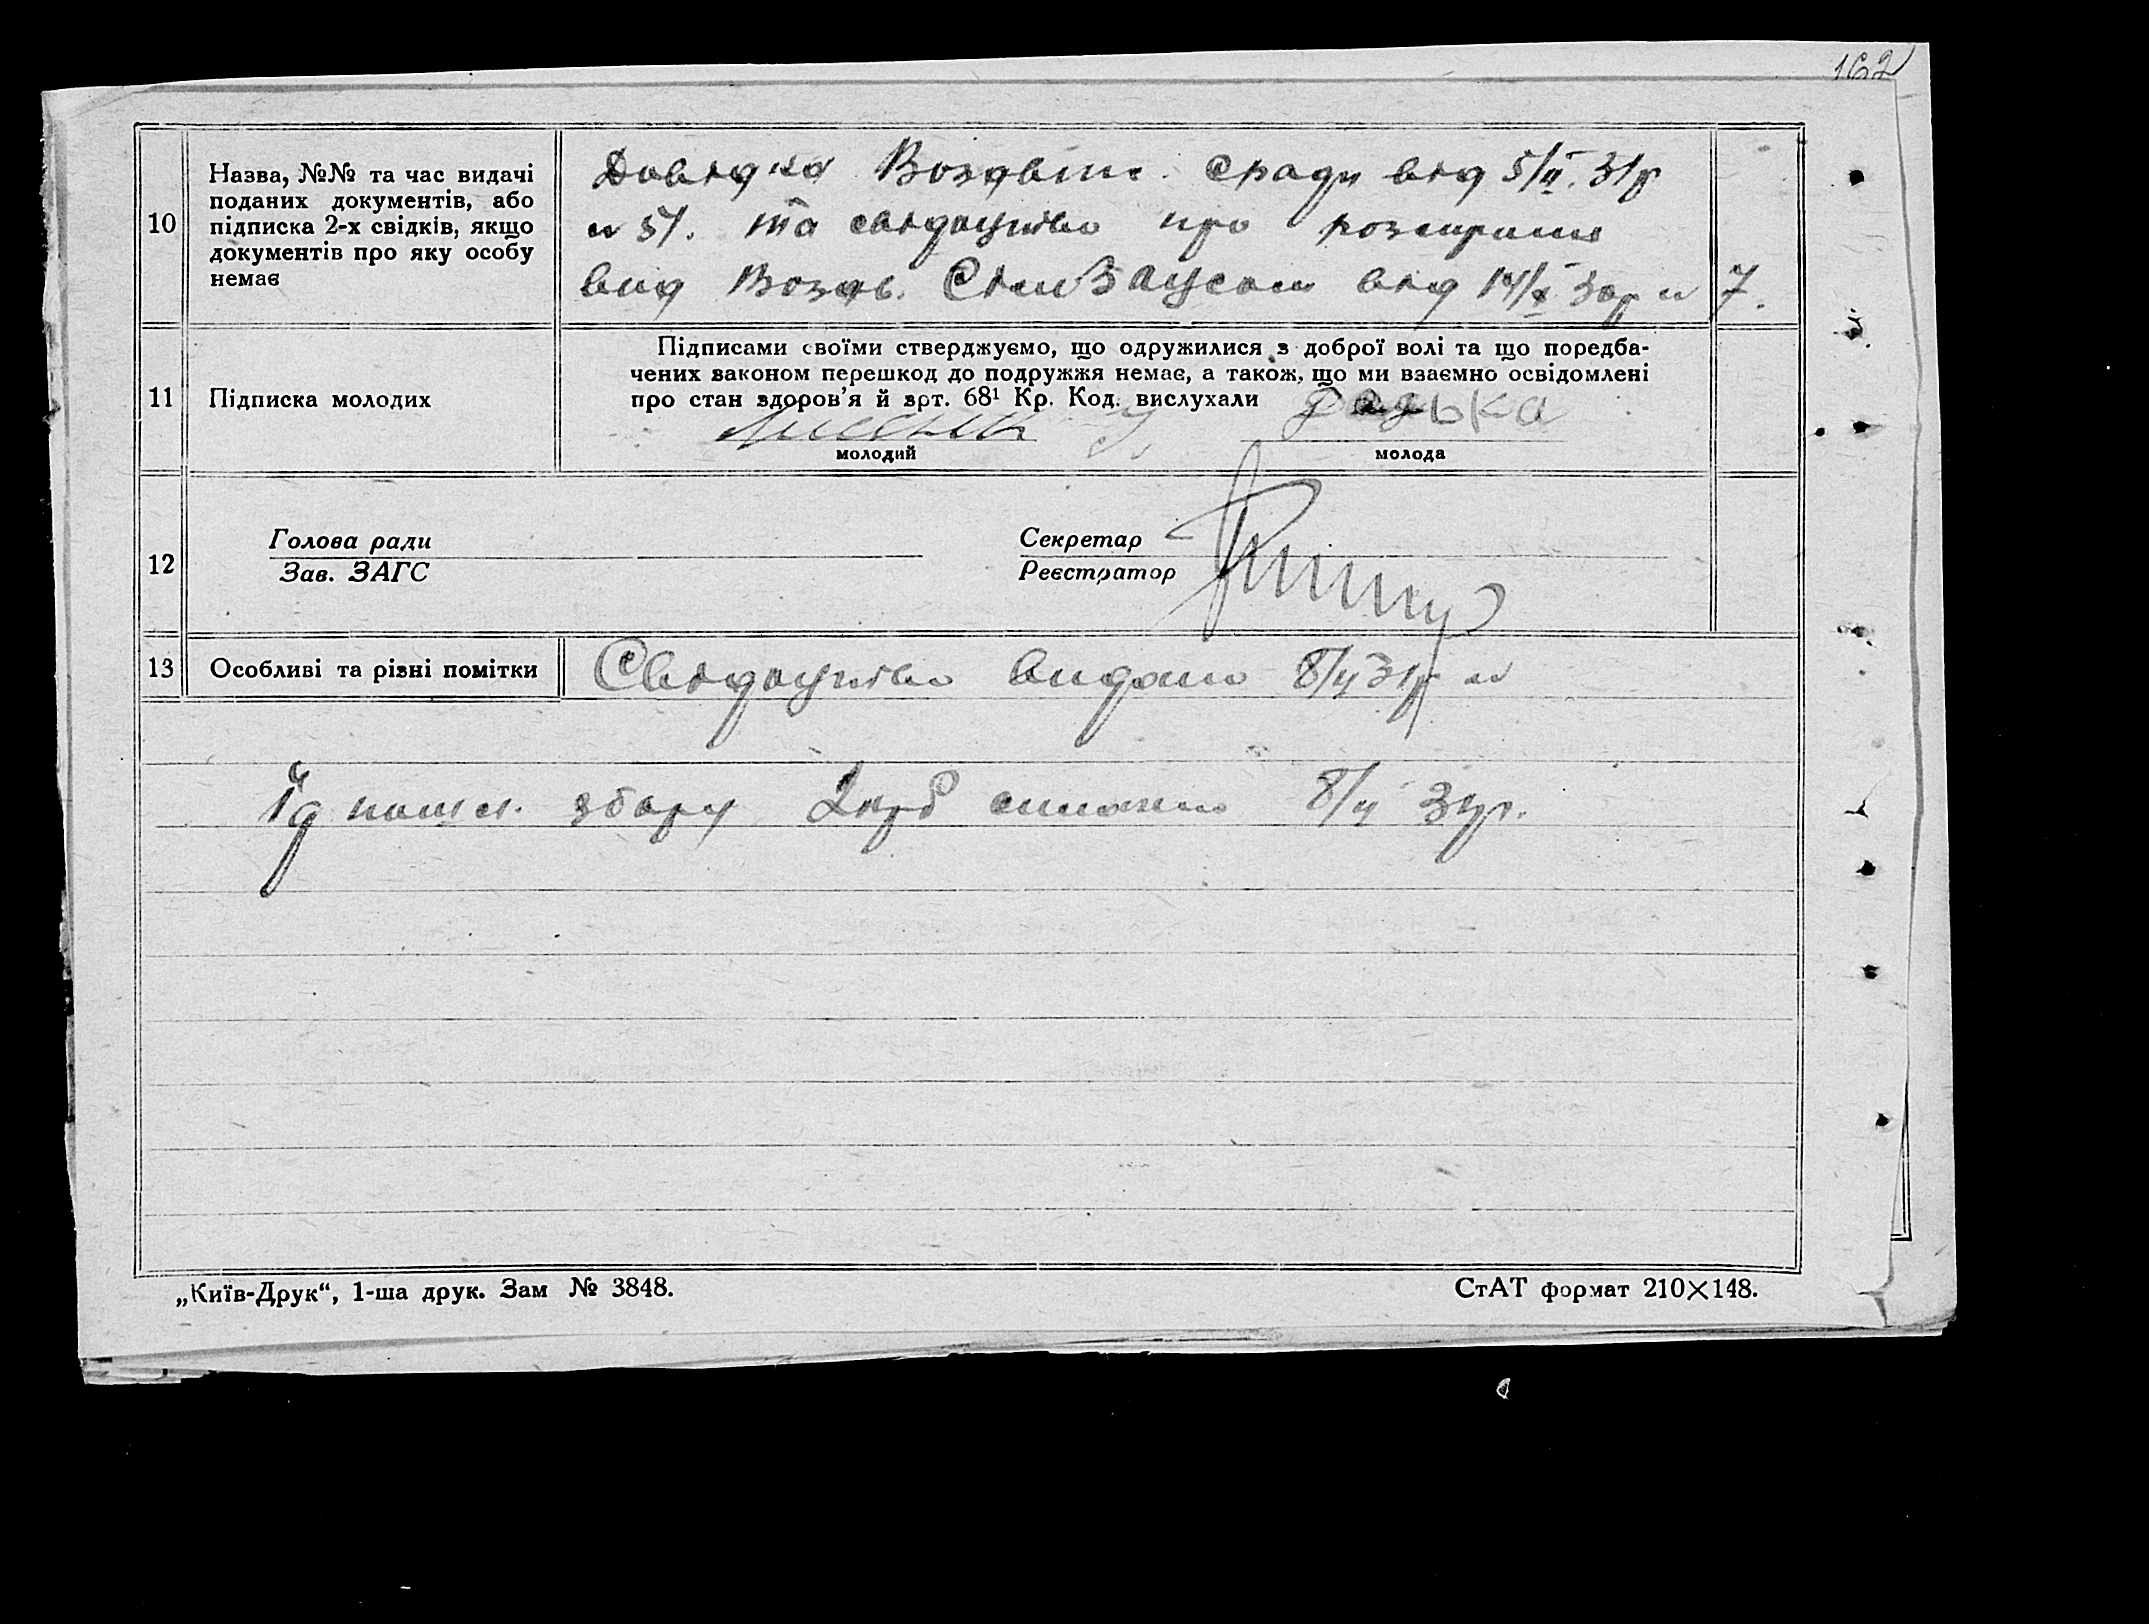 162
10
Назва, №№ та час видачі
поданих документів, або
підписка 2-х свідків, якщо
документів про яку особу
немає
Довідка Воздвиж. с ради від 5/II. 31р
№ 51. та свідоцтво про розлучення
від Воздв. від 14/X 30р № 7.
11
Підписка молодих
Підписами своїми стверджуємо, що одружилися з доброї волі та що поредба-
чених законом перешкод до подружжя немає, а також, що ми взаємно освідомлені
про стан здоров'я й врт. 68¹ Кр. Код. вислухали
молодий
молода
12
Голова ради
Зав. ЗАГС
Секретар
Реєстратор
13
Особливі та різні помітки
Свідоцтво видано 8/II 31р №
збору 2 крб 8/II 31р.
„Київ-Друк“, 1-ша друк. Зам № 3848.
СтАТ формат 210×148.